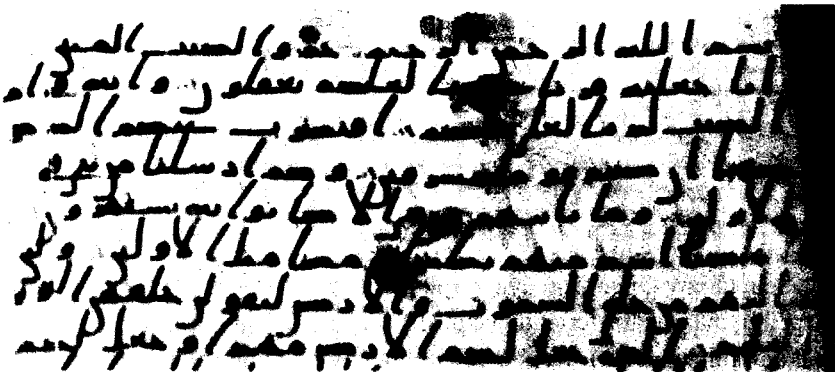 بسم الله الرحمن الرحيم حم والكتب المبين
انا جعلنه قرنا عربيا لعلكم تعقلون وانه في ام
الكتب لدينا لعلي حكيم افنضرب عنكم الذكر صفـ
ـحا ان كنتم قوما مسرفين وكم ارسلنا من نبي في
الاولين وما ياتيهم من نبي الا كانوا به يستهزون
فاهلكنا اشد منهم بطشا ومضى مثل الاولين ولئن
سالتهم من خلق السموت والارض ليقولن خلقهن العز
يز العليم الذي جعل لكم الارض مهدا وجعل لكم